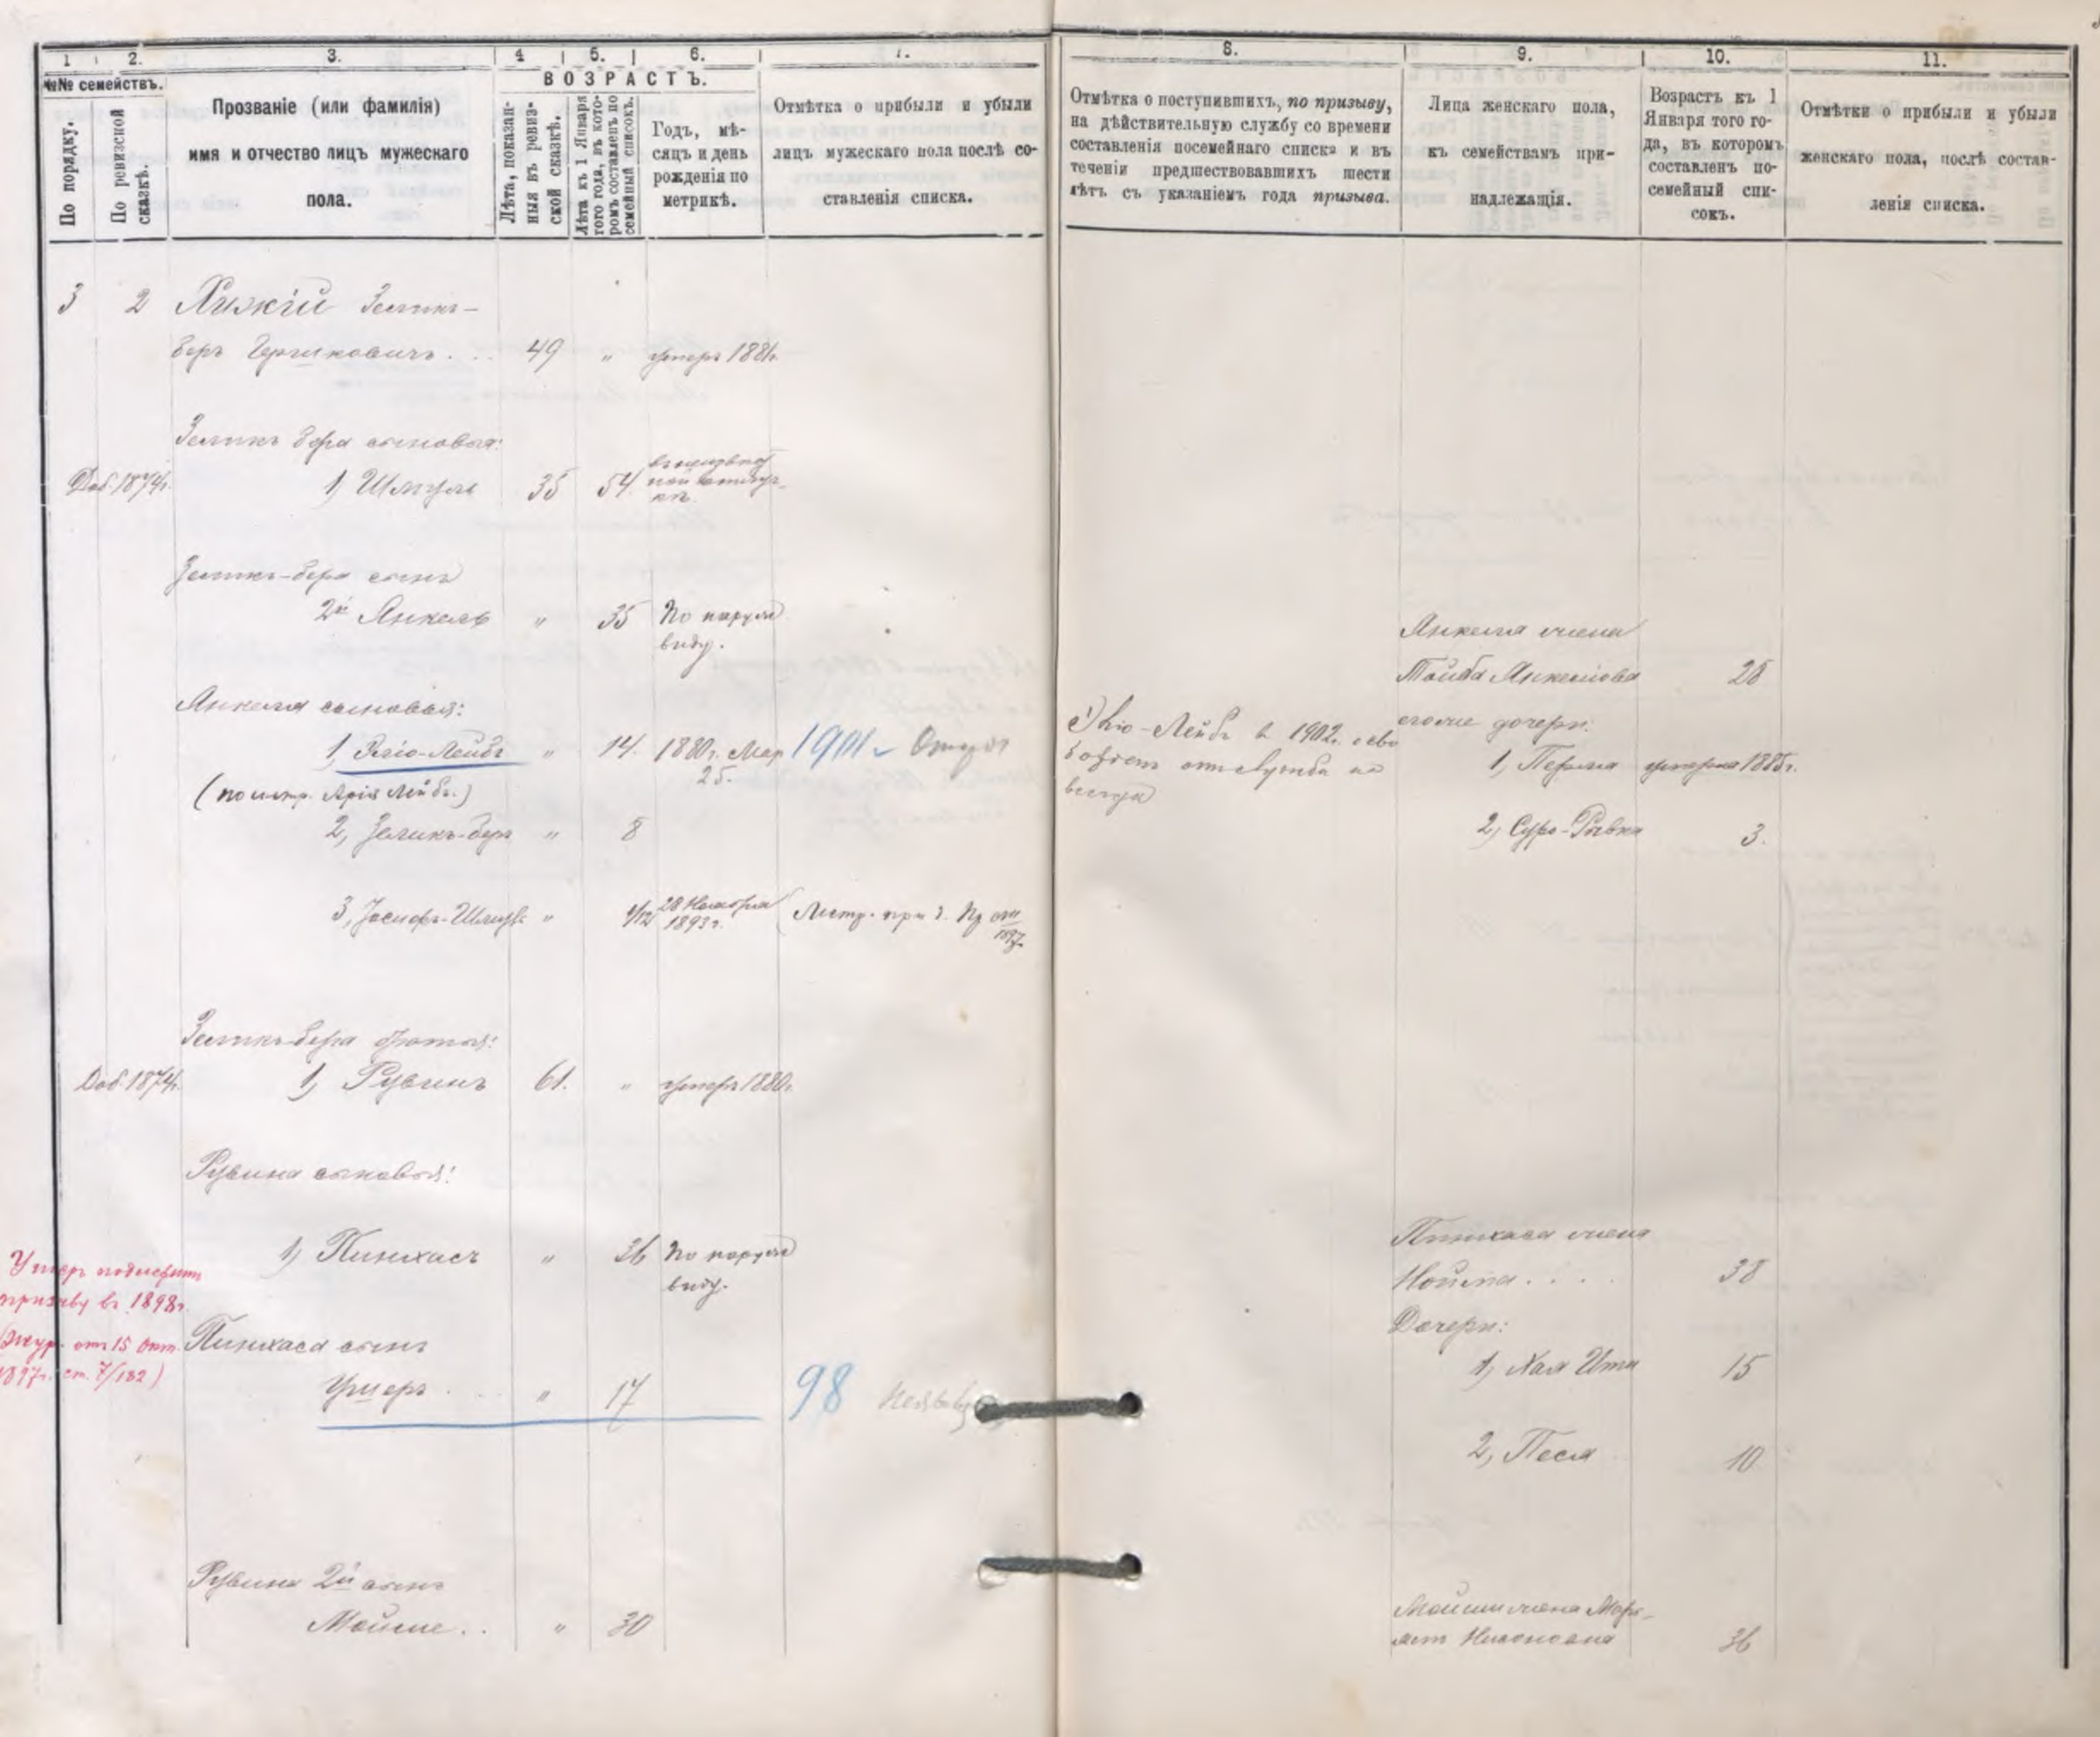 1 2. 3. 4 5. 6. 7.
№№ семействъ.
По порядку.
По ревизской сказкѣ.
Прозваніе (или фамилія)
имя и отчество лицъ мужескаго
пола.
ВОЗРАСТЪ.
Лѣта, показан-
ныя въ ревиз-
ской сказкѣ.
Лѣта къ 1 Января
того года, въ кото-
ромъ составленъ по
семейный списокъ.
Годъ, мѣ-
сяцъ и день
рожденія по
метрикѣ.
Отмѣтка о прибыли и убыли
лицъ мужескаго пола послѣ со-
ставленія списка.
3 2 Зеликъ-
беръ Гершковичъ . . . 49 " умеръ 1881г.
Зеликъ бера сыновья:
Доб. 1874г. 1, Шмуль 35 54
Зеликъ-бера сынъ
2й Янкель " 35 По наруж
виду.
Янкеля сыновья:
1, -Лейбъ " 14. 1880г. Мар 1901
25.
(по метр. Арія Лейбъ.)
2, Зеликъ-беръ " 8
3, Іосифъ- " 1/12 28 Ноября
1893г. Метр. при
1897
Зеликъ-бера братья:
Доб. 1874г. 1, Рувинъ 61. " умеръ 1880г.
Рувина сыновья:
1, Пинхасъ " 36 По наруж
виду.
Умеръ
призыву въ 1898г.
Жур. от 15 Окт.
1897г. ст. 7/182)
Пинхаса сынъ
Ушеръ . . . " 17 98
Рувина 2й сынъ
Мойше . . " 30
8. 9. 10. 11.
Отмѣтка о поступившихъ, по призыву,
на дѣйствительную службу со времени
составленія посемейнаго списка и въ
теченіи предшествовавшихъ шести
лѣтъ съ указаніемъ года призыва.
Лица женскаго пола,
къ семействамъ при-
надлежащія.
Возрастъ къ 1
Января того го-
да, въ которомъ
составленъ по-
семейный спи-
сокъ.
Отмѣтки о прибыли и убыли
женскаго пола, послѣ состав-
ленія списка.
Янкеля жена
Тойба Янкелова
-Лейбъ в 1902г.
от службы на
всегда
дочери:
1, Перла умерла 1885г.
2, Суро-Рывка 3.
Пинхаса жена
Нойма . . . . 38
Дочери:
1, Хая Ита 15
2, Песя 10
Мойши жена Мор-
36